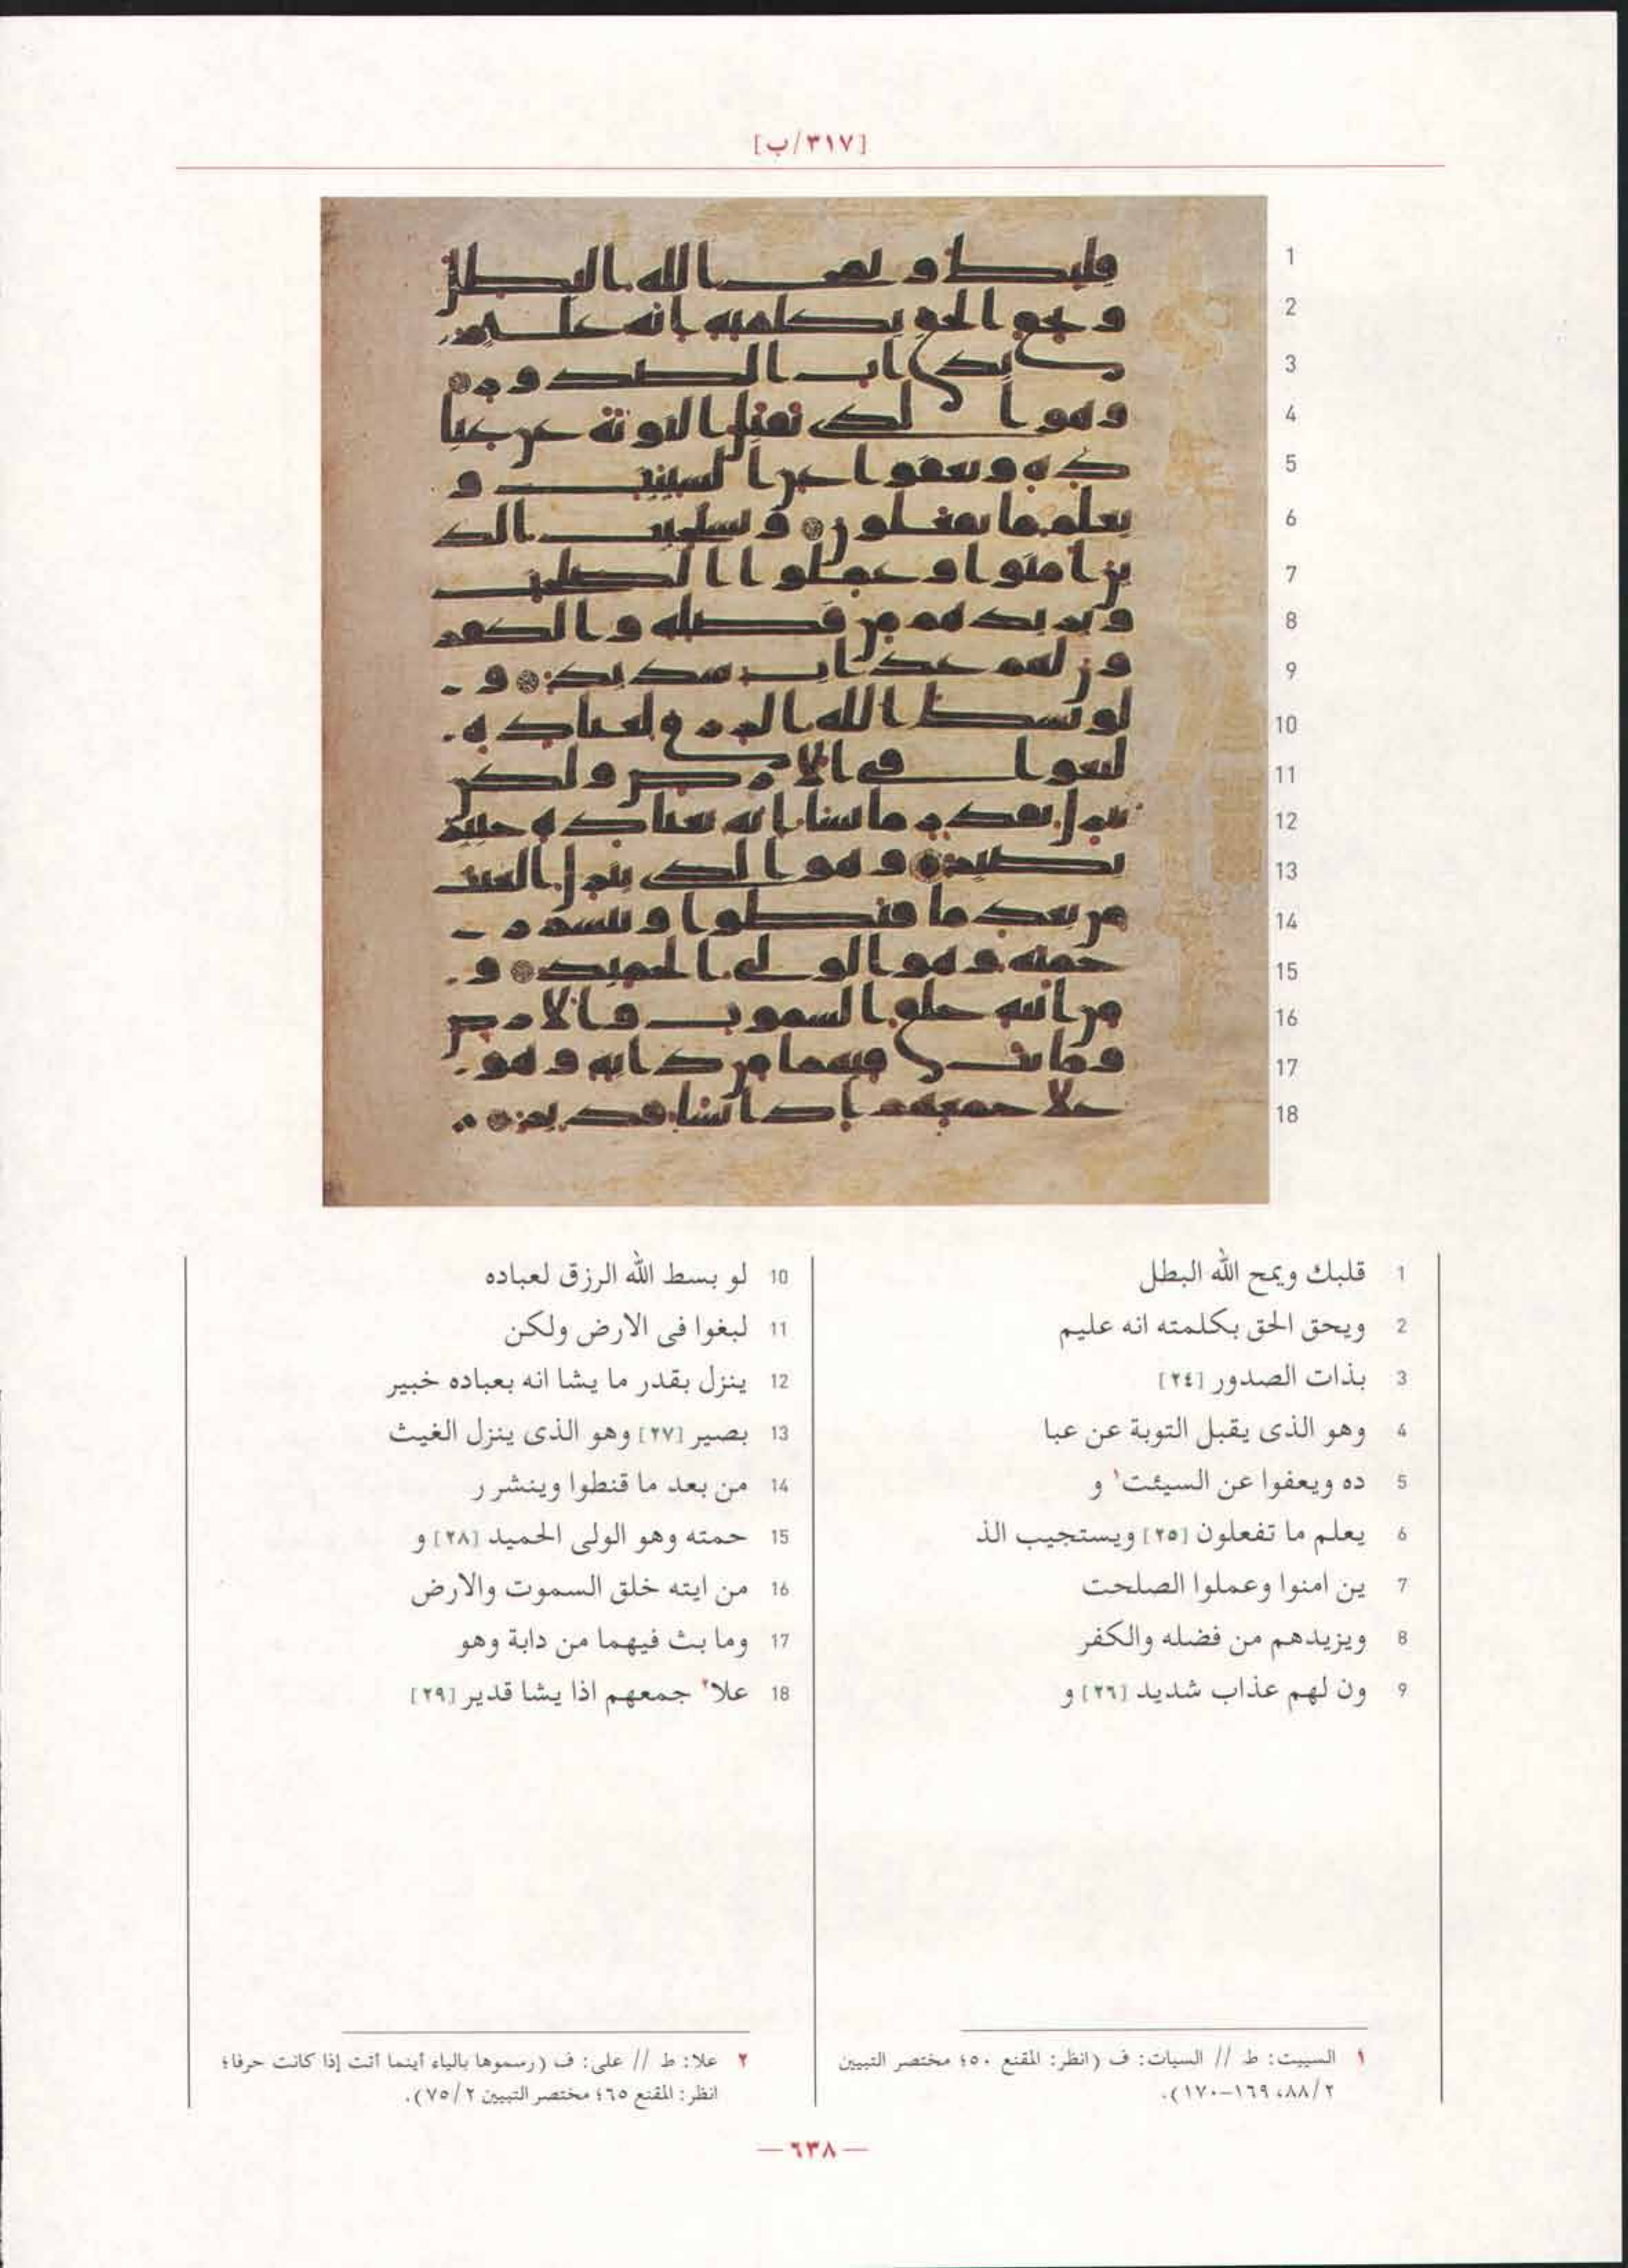 [٣١٧/ب]
1
2
3
4
5
6
7
8
9
10
11
12
13
14
15
16
17
18
1 قلبك ويمح الله البطل
2 ويحق الحق بكلمته انه عليم
3 بذات الصدور [٢٤]
4 وهو الذى يقبل التوبة عن عبا
5 ده ويعفوا عن السيئت١ و
6 يعلم ما تفعلون [٢٥] ويستجيب الذ
7 ين امنوا وعملوا الصلحت
8 ويزيدهم من فضله والكفر
9 ون لهم عذاب شديد [٢٦] و
10 لو بسط الله الرزق لعباده
11 لبغوا فى الارض ولكن
12 ينزل بقدر ما يشا انه بعباده خبير
13 بصير [٢٧] وهو الذى ينزل الغيث
14 من بعد ما قنطوا وينشر ر
15 حمته وهو الولى الحميد [٢٨] و
16 من ايته خلق السموت والارض
17 وما بث فيهما من دابة وهو
18 علا٢ جمعهم اذا يشا قدير [٢٩]
١ السييت: ط // السيات: ف (انظر: المقنع ٥٠؛ مختصر التبيين
٢/٨٨، ١٦٩-١٧٠).
٢ علا: ط // على: ف (رسموها بالياء أينما أتت إذا كانت حرفا؛
انظر: المقنع ٦٥؛ مختصر التبيين ٢/٧٥).
— ٦٣٨ —